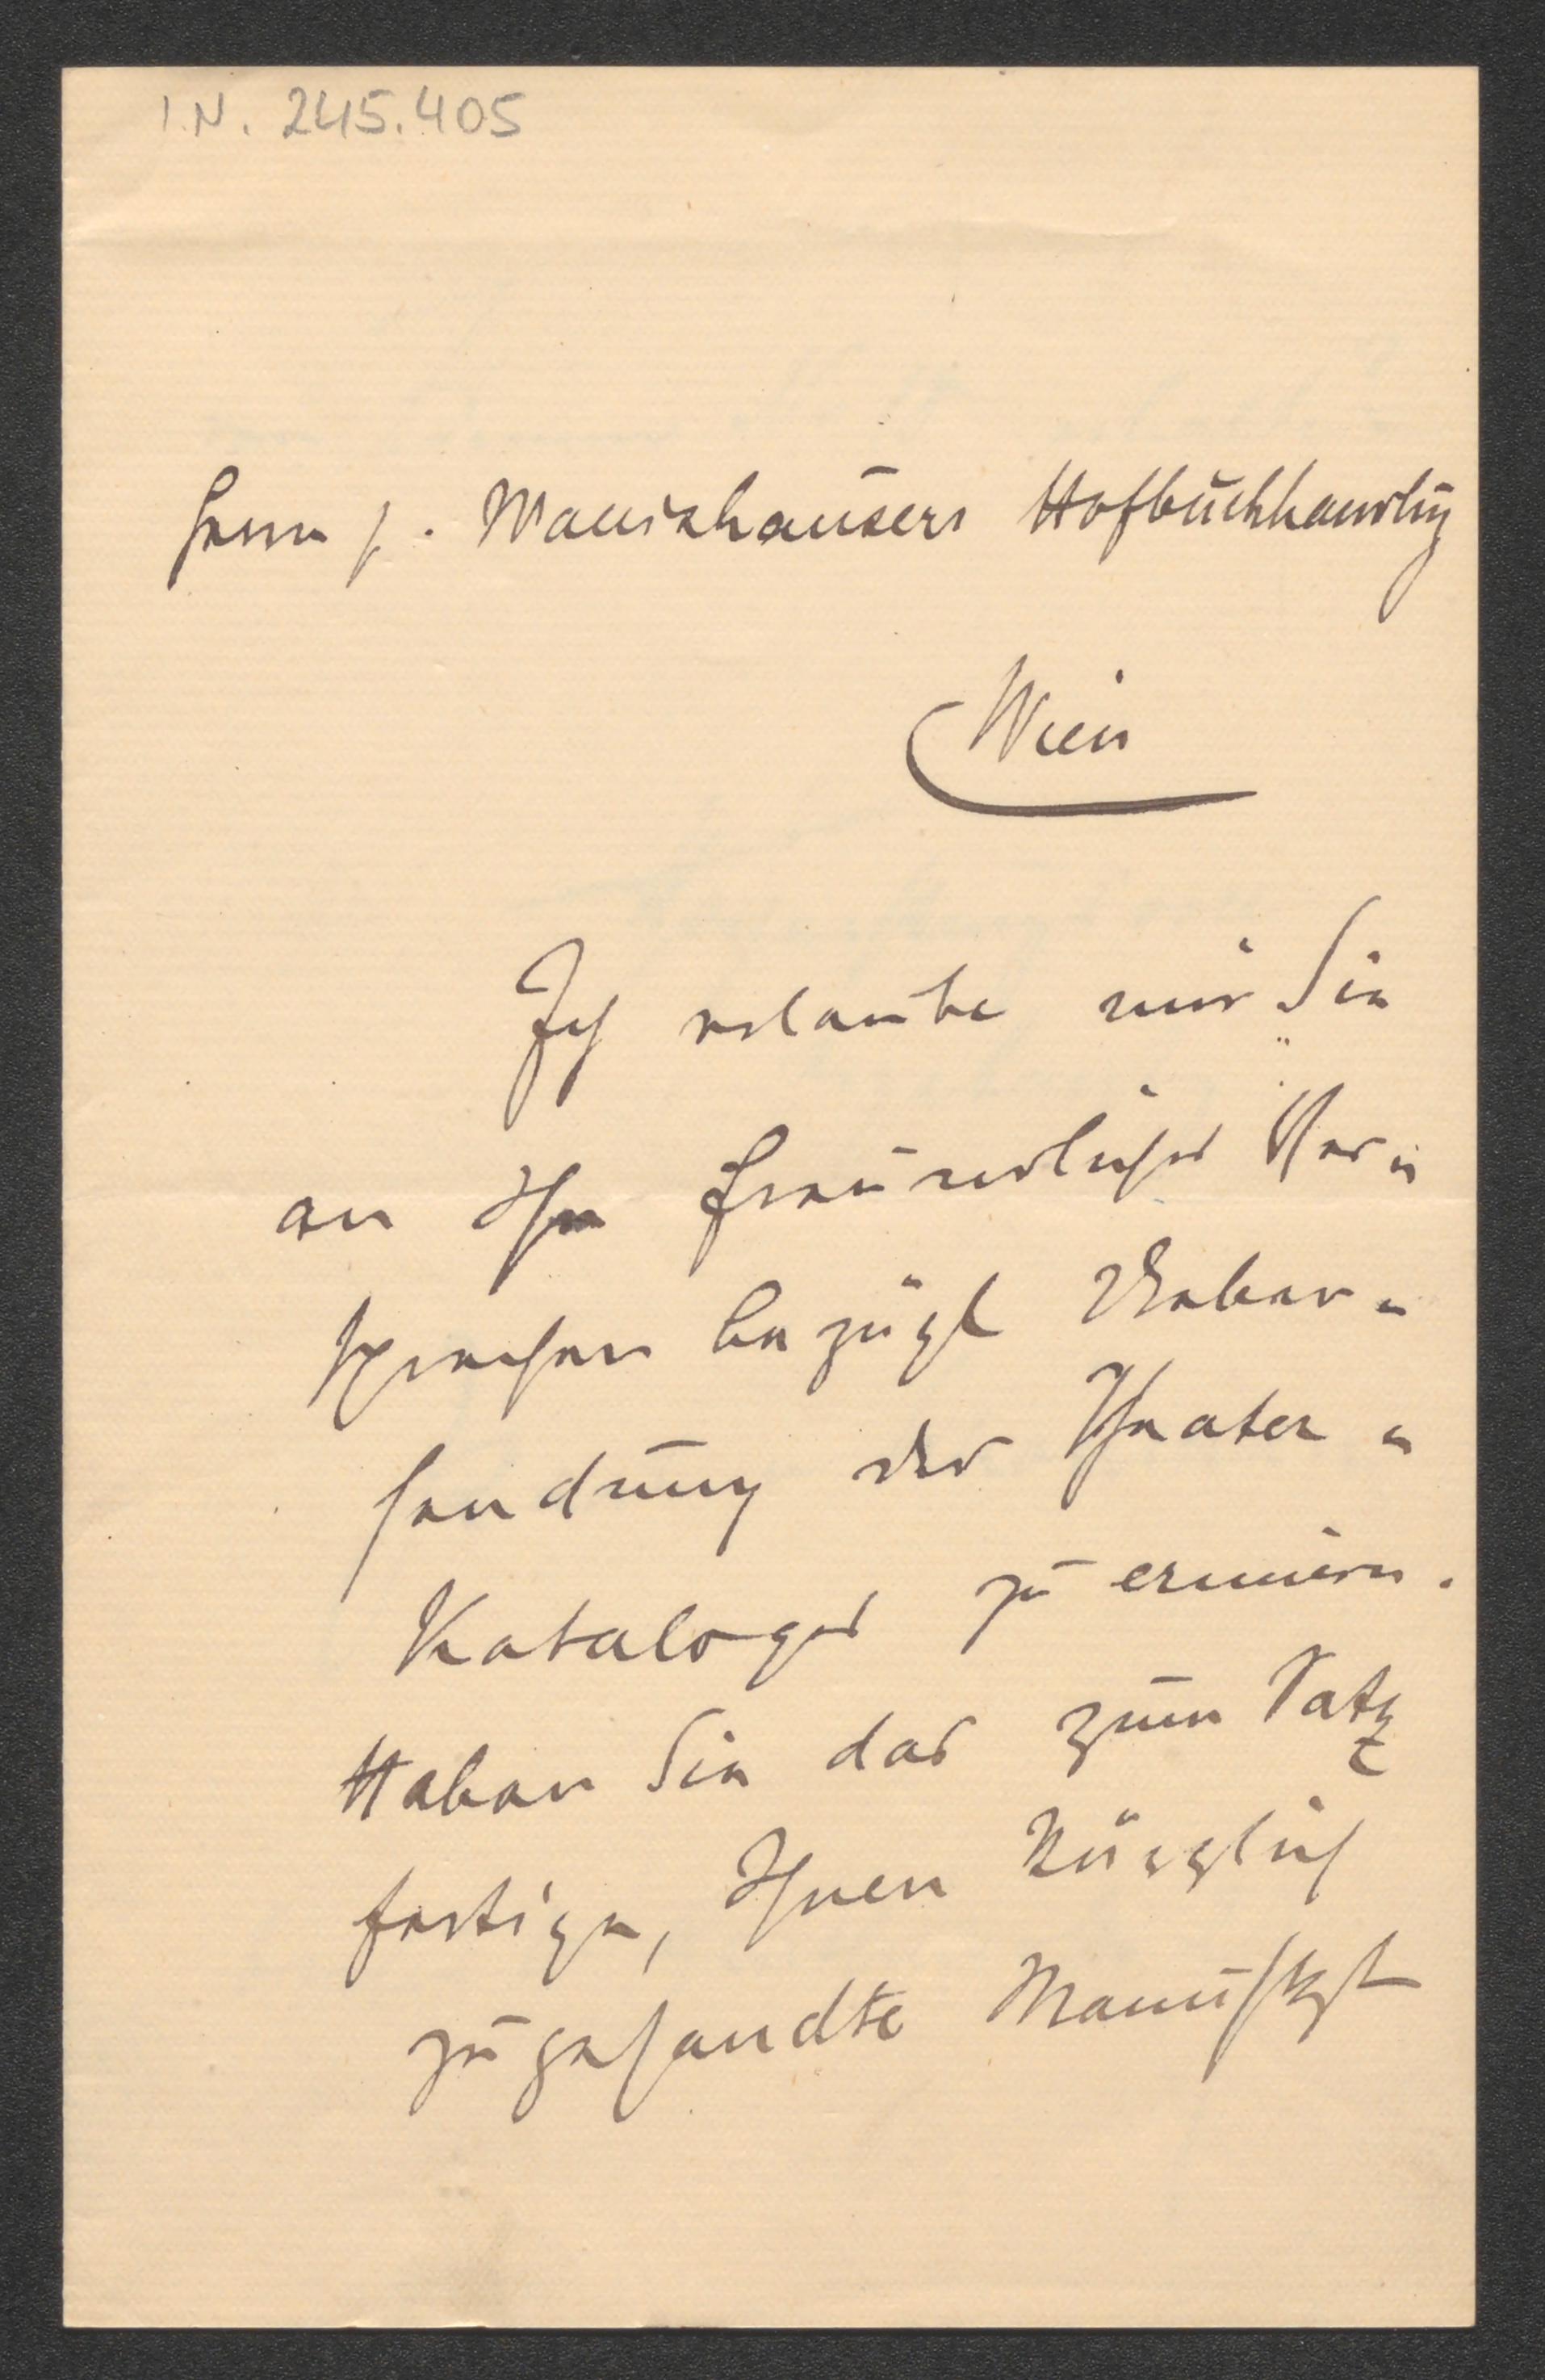 I.N. 245.405
Herrn J. Wallishausers Hofbuchhandlg
Wien
Ich erlaube mir Sie
an Ihr freundliches Ver-
sprechen bezügl Ueber-
sendung des Theater-
Kataloges zu erinnern.
Haben Sie das zum Satz
fertige, Ihnen kürzlich
zugesandte Manuskpt